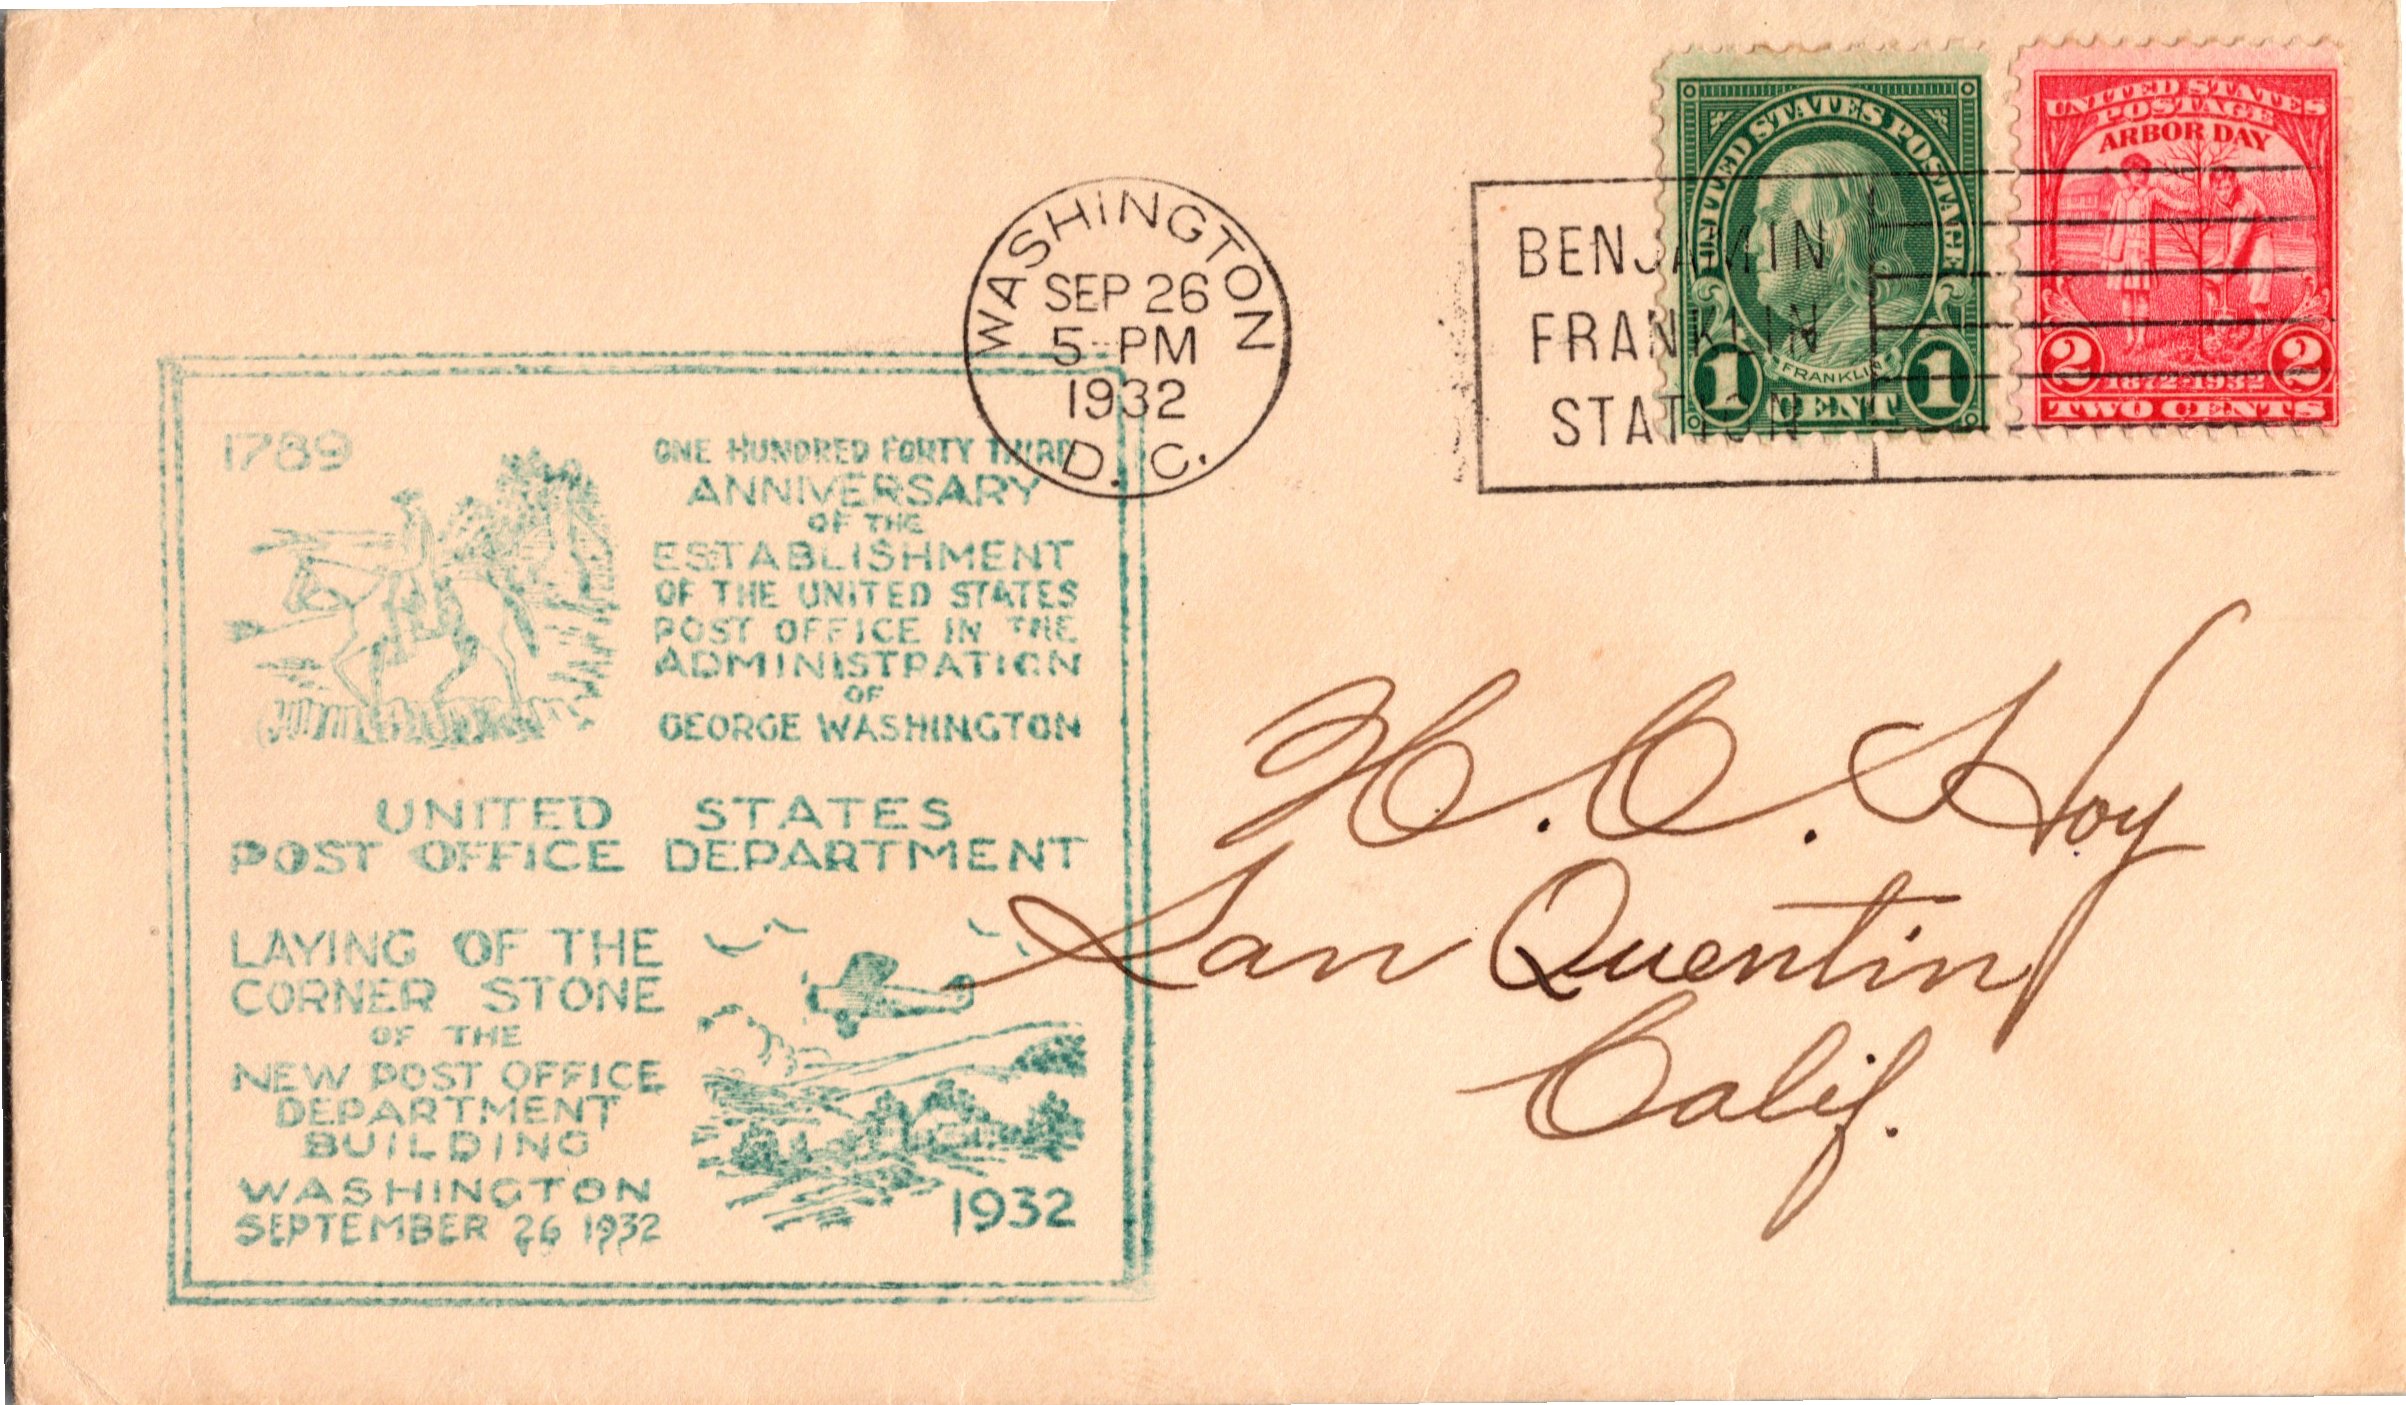 UNITED STATES POSTAGE
FRANKLIN
1 CENT 1
UNITED STATES
POSTAGE
ARBOR DAY
2 1872-1932 2
TWO CENTS
WASHINGTON
SEP 26
5-PM
1932
D. C.
BENJAMIN
FRANKLIN
STATION
1789
ONE HUNDRED FORTY THIRD
ANNIVERSARY
OF THE
ESTABLISHMENT
OF THE UNITED STATES
POST OFFICE IN THE
ADMINISTRATION
OF
GEORGE WASHINGTON
UNITED STATES
POST OFFICE DEPARTMENT
LAYING OF THE
CORNER STONE
OF THE
NEW POST OFFICE
DEPARTMENT
BUILDING
WASHINGTON
SEPTEMBER 26 1932
1932
H. C. Hoy
San Quentin
Calif.